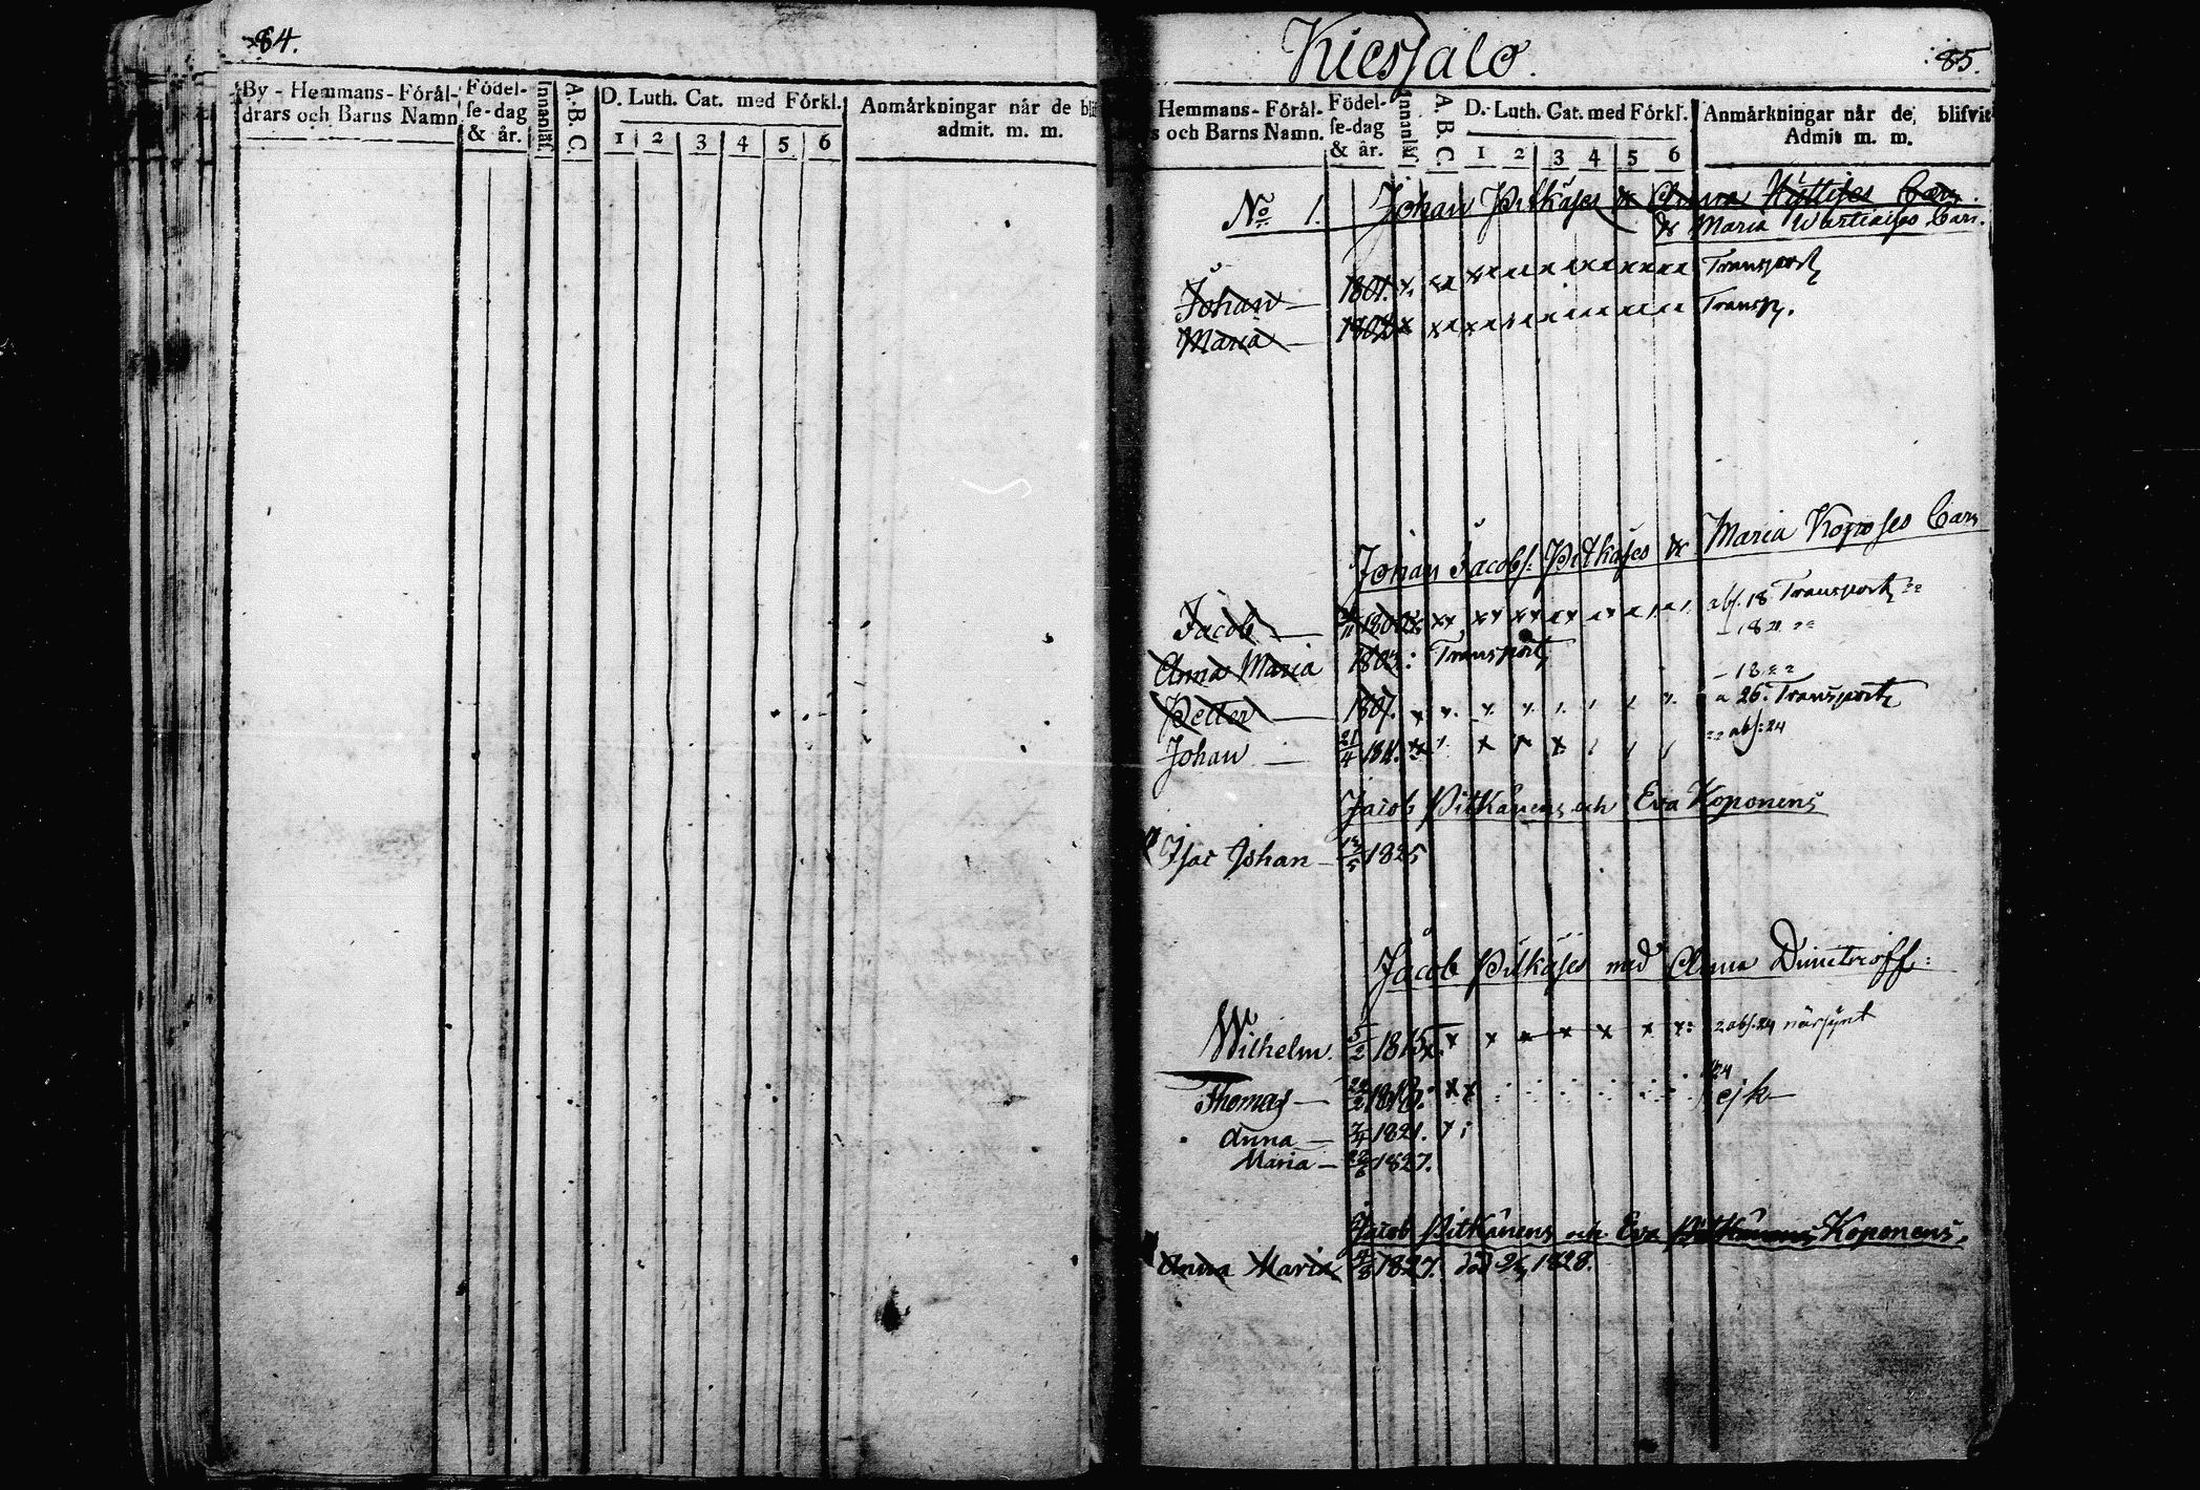 84.
By-Hemmans-Förål-
drars och Barns Namn
Födel-
se-dag
& år.
Innanläs.
A.B.C.
D. Luth. Cat. med Förkl.
1 2 3 4 5 6
Anmårkningar når de blif
admit. m. m.
Kiesjalo.
85.
Hemmans-Förål-
s och Barns Namn.
Födel-
se-dag
& år.
Innanläs.
A.B.C.
D. Luth. Cat. med Förkl.
1 2 3 4 5 6
Anmårkningar når de blifvit
Admit m. m.
No 1. Johan Pitkäses & Anna Barn.
& Maria Wartiaises Barn.
Johan — 1801. Transport
Maria — 1802 Transp.
Johan Jacobs: Pitkäses & Maria Koposes Barn
Jacob — 1800 abs. 18 Transport
Anna Maria 1803: Transport
Petter — 1807. 26. Transport
Johan — 21/4 181 abs: 24
Jacob Pitkänens och Eva Koponens
Isac Johan — 1825
Jacob Pitkäses med Anna Dimitrioff:
Wilhelm. 5/2 1815 abs. 24 närsynt
Thomas — 24 ejk—
Anna — 1821.
Maria — 22/6 1827.
Jacob Pitkänens och Eva Pitkänens Koponens.
Anna Maria 1827. död 1828.